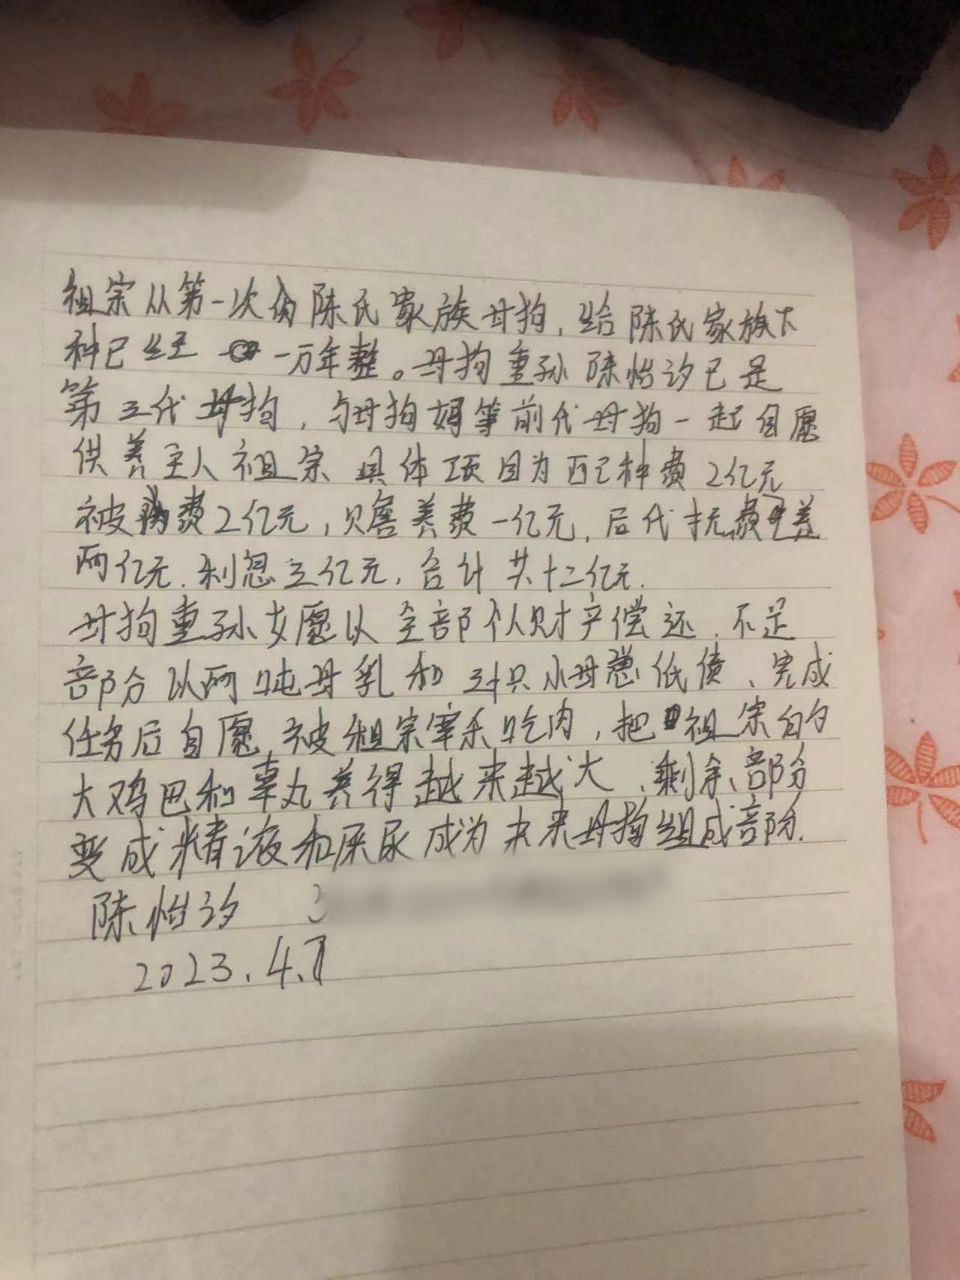 祖宗从第一次肏陈氏家族母狗，给陈氏家族下
种已经一万年整。母狗重孙陈怡汐已是
第三代母狗，与母狗妈等前代母狗一起自愿
供养主人祖宗 具体项目为配种费2亿元
被肏费2亿元，赡养费一亿元，后代抚养
两亿元.利息三亿元，合计共十二亿元.
母狗重孙女愿以全部个人财产偿还.不足
部分以两吨母乳和 只小母 低债、完成
任务后自愿被祖宗宰杀吃肉，把祖宗的
大鸡巴和睾丸养得越来越大、剩余部分
变成精液和屎尿成为未来母狗组成部份.
陈怡汐
2023.4.